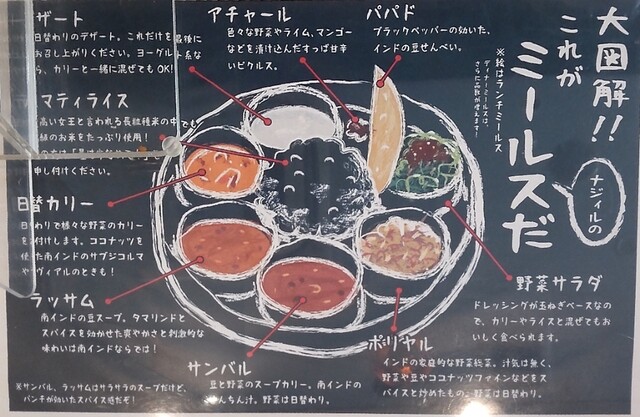 大図解!!
これが
ミールスだ
ナジィルの
※絵はランチミールス
ディナーミールスは、
さらに品数が増えます!
パパド
ブラックペッパーの効いた、
インドの豆せんべい。
アチャール
色々な野菜やライム、マンゴー
などを漬け込んだすっぱ甘辛
いピクルス。
ザート
日替わりのデザート。これだけを最後に
お召し上がりください。ヨーグルト系な
ら、カリーと一緒に混ぜてもOK!
マティライス
高い女王と言われる長粒種米の中でも
緑のお米をたっぷり使用!
申し付けください。
日替カリー
日替わりで様々な野菜のカリー
を付けします。ココナッツを
使た南インドのサブジコルマ
やヴィアルのときも!
ラッサム
南インドの豆スープ。タマリンドと
スパイスを効かせた爽やかさと刺激的な
味わいは南インドならでは!
サンバル
豆と野菜のスープカリー。南インドの
けんちん汁。野菜は日替わり。
ポリヤル
インドの家庭的な野菜総菜。汁気は無く、
野菜や豆やココナッツファインなどをス
パイスと炒めたもの。野菜は日替わり。
野菜サラダ
ドレッシングが玉ねぎベースなの
で、カリーやライスと混ぜてもお
いしく食べられます。
※サンバル、ラッサムはサラサラのスープだけど、
パンチが効いたスパイス感だぞ!